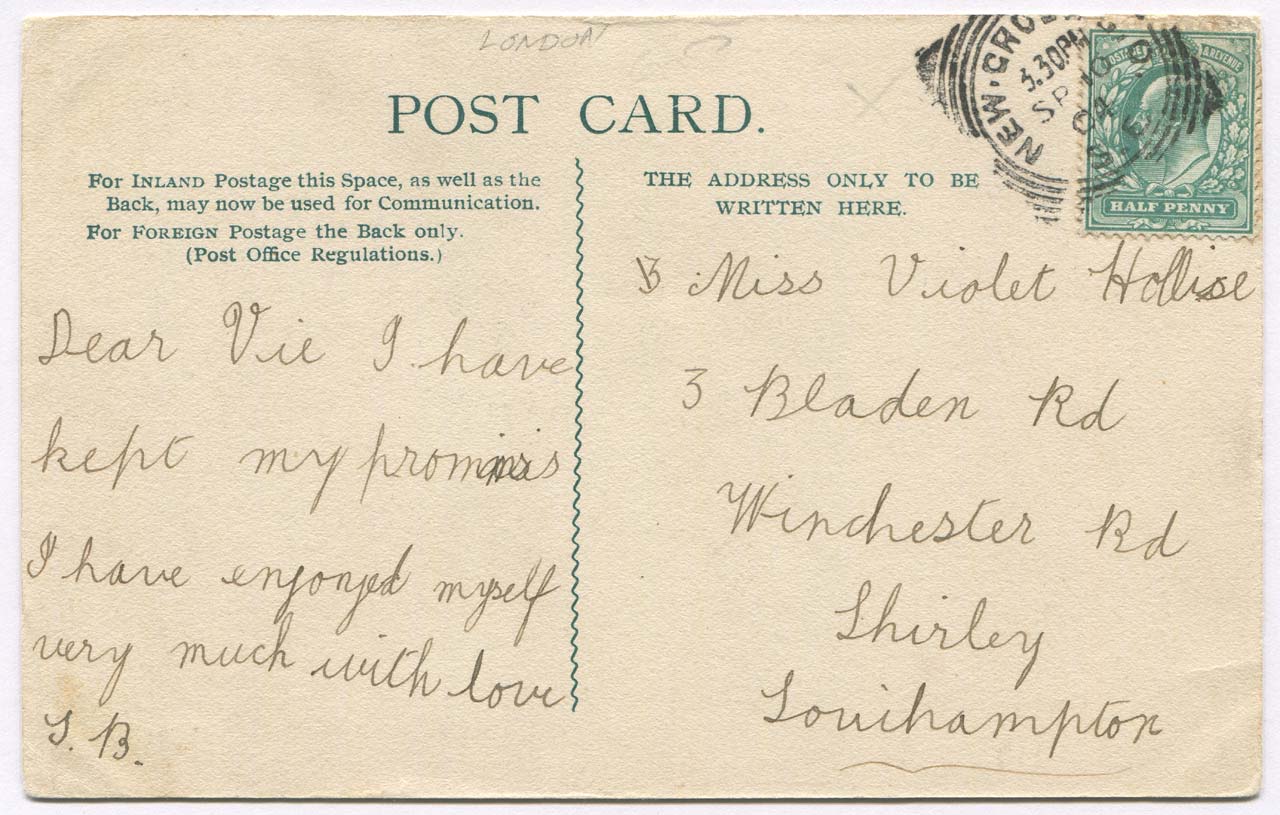 LONDON
POST CARD.
For INLAND Postage this Space, as well as the
Back, may now be used for Communication.
For FOREIGN Postage the Back only.
(Post Office Regulations.)
THE ADDRESS ONLY TO BE
WRITTEN HERE.
NEW·CROSS
3.30PM
SP 10
04
S.E
POSTAGE & REVENUE
HALF PENNY
Dear Vie I have
kept my promis
I have enjonged myself
very much with love
S. B.
Miss Violet
3 Bladen Rd
Winchester Rd
Shirley
Southampton